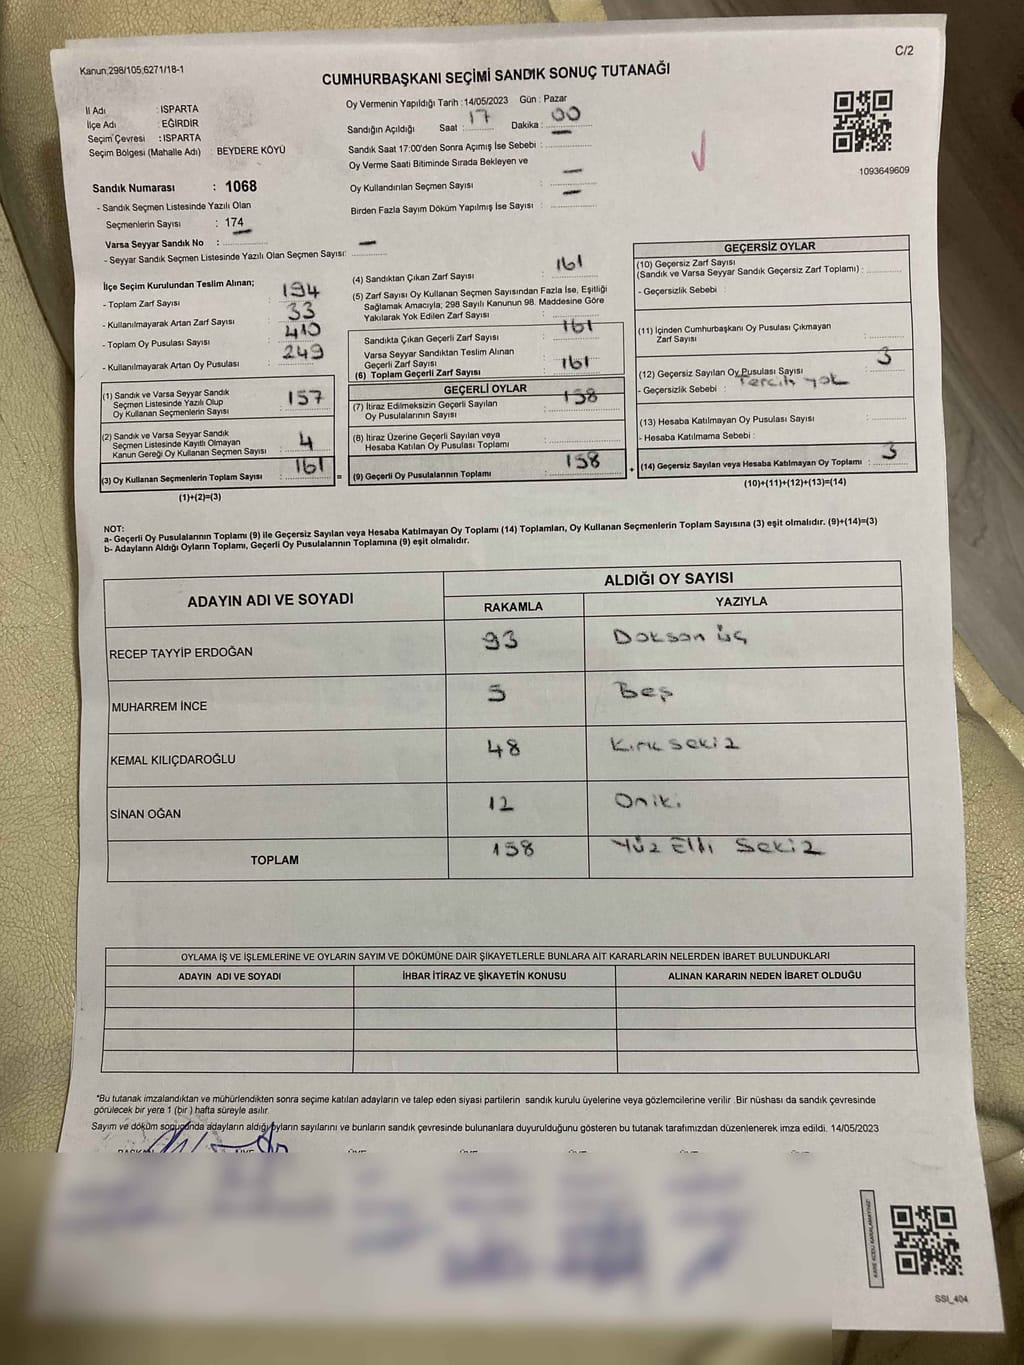 C/2
Kanun,298/105,6271/18-1
CUMHURBAŞKANI SEÇİMİ SANDIK SONUÇ TUTANAĞI
İl Adı : ISPARTA
İlçe Adı : EĞİRDİR
Seçim Çevresi : ISPARTA
Seçim Bölgesi (Mahalle Adı) : BEYDERE KÖYÜ
Sandık Numarası : 1068
- Sandık Seçmen Listesinde Yazılı Olan
Seçmenlerin Sayısı : 174
Varsa Seyyar Sandık No :
- Seyyar Sandık Seçmen Listesinde Yazılı Olan Seçmen Sayısı: —
Oy Vermenin Yapıldığı Tarih :14/05/2023 Gün : Pazar
Sandığın Açıldığı Saat : 17 Dakika : 00
Sandık Saat 17:00'den Sonra Açımış İse Sebebi : —
Oy Verme Saati Bitiminde Sırada Bekleyen ve
Oy Kullandırılan Seçmen Sayısı : —
Birden Fazla Sayım Döküm Yapılmış İse Sayısı : —
1093649609
İlçe Seçim Kurulundan Teslim Alınan;
- Toplam Zarf Sayısı : 194
- Kullanılmayarak Artan Zarf Sayısı : 33
- Toplam Oy Pusulası Sayısı : 410
- Kullanılmayarak Artan Oy Pusulası : 249
(1) Sandık ve Varsa Seyyar Sandık
Seçmen Listesinde Yazılı Olup
Oy Kullanan Seçmenlerin Sayısı : 157
(2) Sandık ve Varsa Seyyar Sandık
Seçmen Listesinde Kayıtlı Olmayan
Kanun Gereği Oy Kullanan Seçmen Sayısı : 4
(3) Oy Kullanan Seçmenlerin Toplam Sayısı : 161
(1)+(2)=(3)
=
(4) Sandıktan Çıkan Zarf Sayısı : 161
(5) Zarf Sayısı Oy Kullanan Seçmen Sayısından Fazla İse, Eşitliği
Sağlamak Amacıyla; 298 Sayılı Kanunun 98. Maddesine Göre
Yakılarak Yok Edilen Zarf Sayısı :
Sandıkta Çıkan Geçerli Zarf Sayısı : 161
Varsa Seyyar Sandıktan Teslim Alınan
Geçerli Zarf Sayısı :
(6) Toplam Geçerli Zarf Sayısı : 161
GEÇERLİ OYLAR
(7) İtiraz Edilmeksizin Geçerli Sayılan
Oy Pusulalarının Sayısı : 158
(8) İtiraz Üzerine Geçerli Sayılan veya
Hesaba Katılan Oy Pusulası Toplamı :
(9) Geçerli Oy Pusulalarının Toplamı : 158
+
GEÇERSİZ OYLAR
(10) Geçersiz Zarf Sayısı
(Sandık ve Varsa Seyyar Sandık Geçersiz Zarf Toplamı) :
- Geçersizlik Sebebi :
(11) İçinden Cumhurbaşkanı Oy Pusulası Çıkmayan
Zarf Sayısı :
(12) Geçersiz Sayılan Oy Pusulası Sayısı : 3
- Geçersizlik Sebebi : Tercih yok
(13) Hesaba Katılmayan Oy Pusulası Sayısı :
- Hesaba Katılmama Sebebi :
(14) Geçersiz Sayılan veya Hesaba Katılmayan Oy Toplamı : 3
(10)+(11)+(12)+(13)=(14)
NOT:
a- Geçerli Oy Pusulalarının Toplamı (9) ile Geçersiz Sayılan veya Hesaba Katılmayan Oy Toplamı (14) Toplamları, Oy Kullanan Seçmenlerin Toplam Sayısına (3) eşit olmalıdır. (9)+(14)=(3)
b- Adayların Aldığı Oyların Toplamı, Geçerli Oy Pusulalarının Toplamına (9) eşit olmalıdır.
ADAYIN ADI VE SOYADI
ALDIĞI OY SAYISI
RAKAMLA YAZIYLA
RECEP TAYYİP ERDOĞAN 93 Doksan üç
MUHARREM İNCE 5 Beş
KEMAL KILIÇDAROĞLU 48 Kırk sekiz
SİNAN OĞAN 12 Oniki
TOPLAM 158 Yüz Elli Sekiz
OYLAMA İŞ VE İŞLEMLERİNE VE OYLARIN SAYIM VE DÖKÜMÜNE DAİR ŞİKAYETLERLE BUNLARA AİT KARARLARIN NELERDEN İBARET BULUNDUKLARI
ADAYIN ADI VE SOYADI İHBAR İTİRAZ VE ŞİKAYETİN KONUSU ALINAN KARARIN NEDEN İBARET OLDUĞU
*Bu tutanak imzalandıktan ve mühürlendikten sonra seçime katılan adayların ve talep eden siyasi partilerin sandık kurulu üyelerine veya gözlemcilerine verilir .Bir nüshası da sandık çevresinde
görülecek bir yere 1 (bir ) hafta süreyle asılır.
Sayım ve döküm sonucunda adayların aldığı oyların sayılarını ve bunların sandık çevresinde bulunanlara duyurulduğunu gösteren bu tutanak tarafımızdan düzenlenerek imza edildi. 14/05/2023
SSI_404